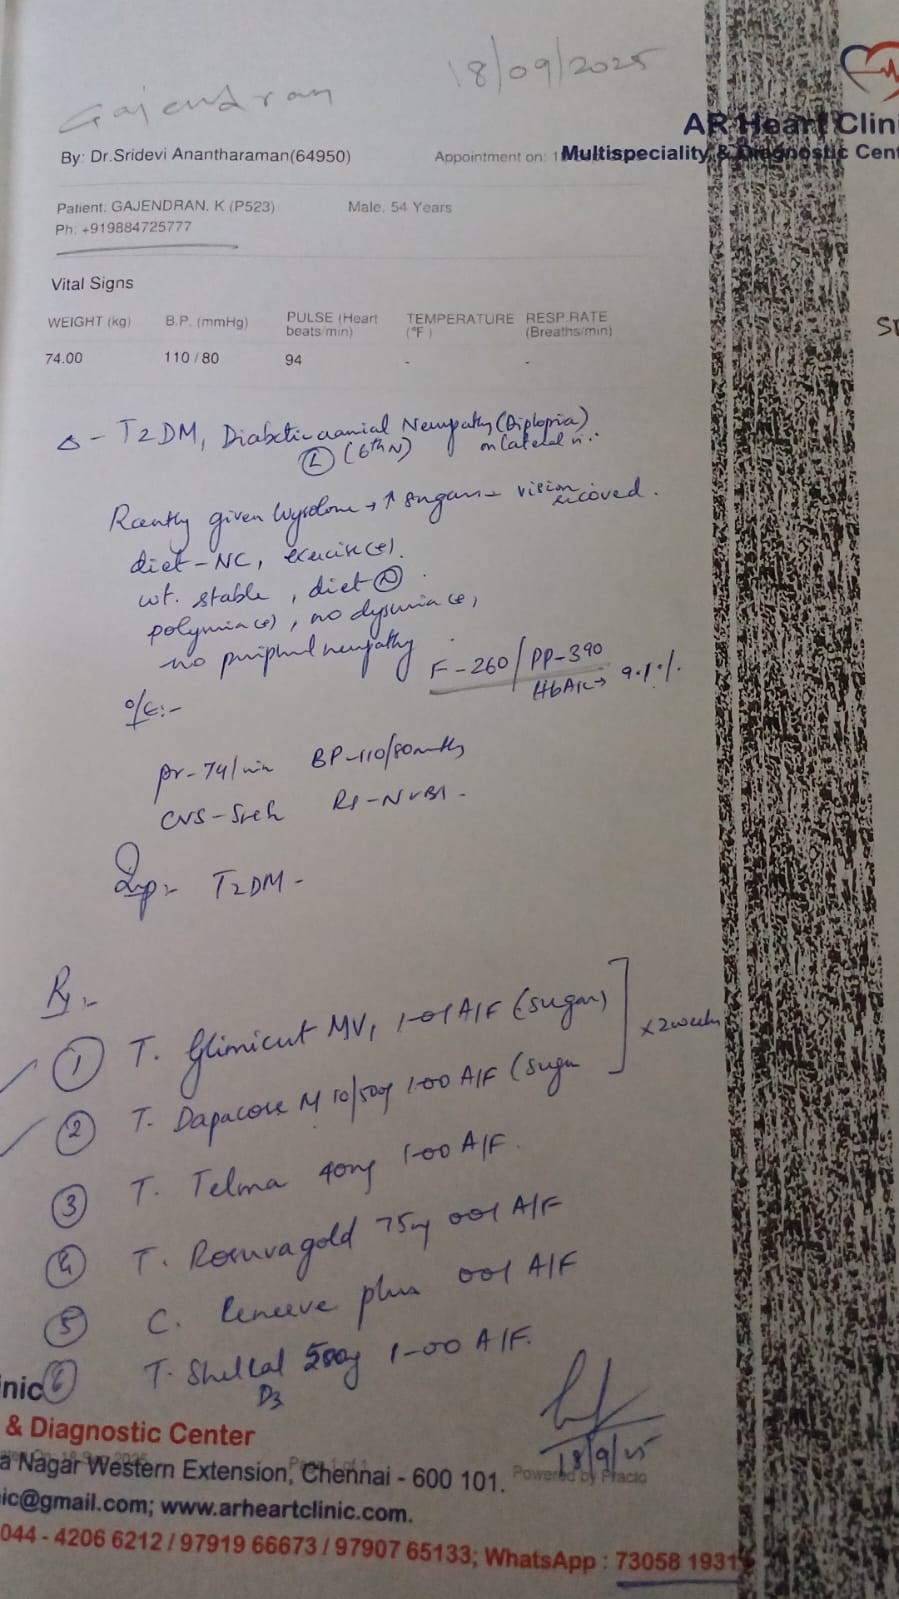 Gajendran 18/09/2025
AR Heart Clini
Multispeciality & Diagnostic Cent
By: Dr.Sridevi Anantharaman(64950) Appointment on: 1
Patient: GAJENDRAN. K (P523) Male, 54 Years
Ph: +919884725777
Vital Signs
WEIGHT (kg) B.P. (mmHg) PULSE (Heart beats/min) TEMPERATURE (°F) RESP.RATE (Breaths/min)
74.00 110 / 80 94 - -
Δ - T2DM, Diabetic cranial Neuropathy (Diplopia)
(L) (6th N) on lateral
Recently given Wysolone → ↑ sugars → vision recovered.
diet - NC, exercise (+).
wt. stable, diet (N).
polyuria (+), no dysuria (+),
no peripheral neuropathy
F - 260 / PP - 390
HbA1c → 9.1%
O/E:-
pr - 74/min BP - 110/80mmHg
CVS - S1S2 RS - NVBS -
Imp:- T2DM -
Rx:-
(1) T. Glimicut MV1 1-0-1 A/F (sugar)
(2) T. Dapacose M 10/500 1-0-0 A/F (sugar
] x 2 weeks
(3) T. Telma 40mg 1-00 A/F.
(4) T. Rosuvagold 75mg 001 A/F
(5) C. plus 001 A/F
(6) T. Shelcal 500mg 1-00 A/F.
D3
18/9/25
nic
& Diagnostic Center
a Nagar Western Extension, Chennai - 600 101. Powered by Practo
ic@gmail.com; www.arheartclinic.com.
044 - 4206 6212 / 97919 66673 / 97907 65133; WhatsApp : 73058 1931